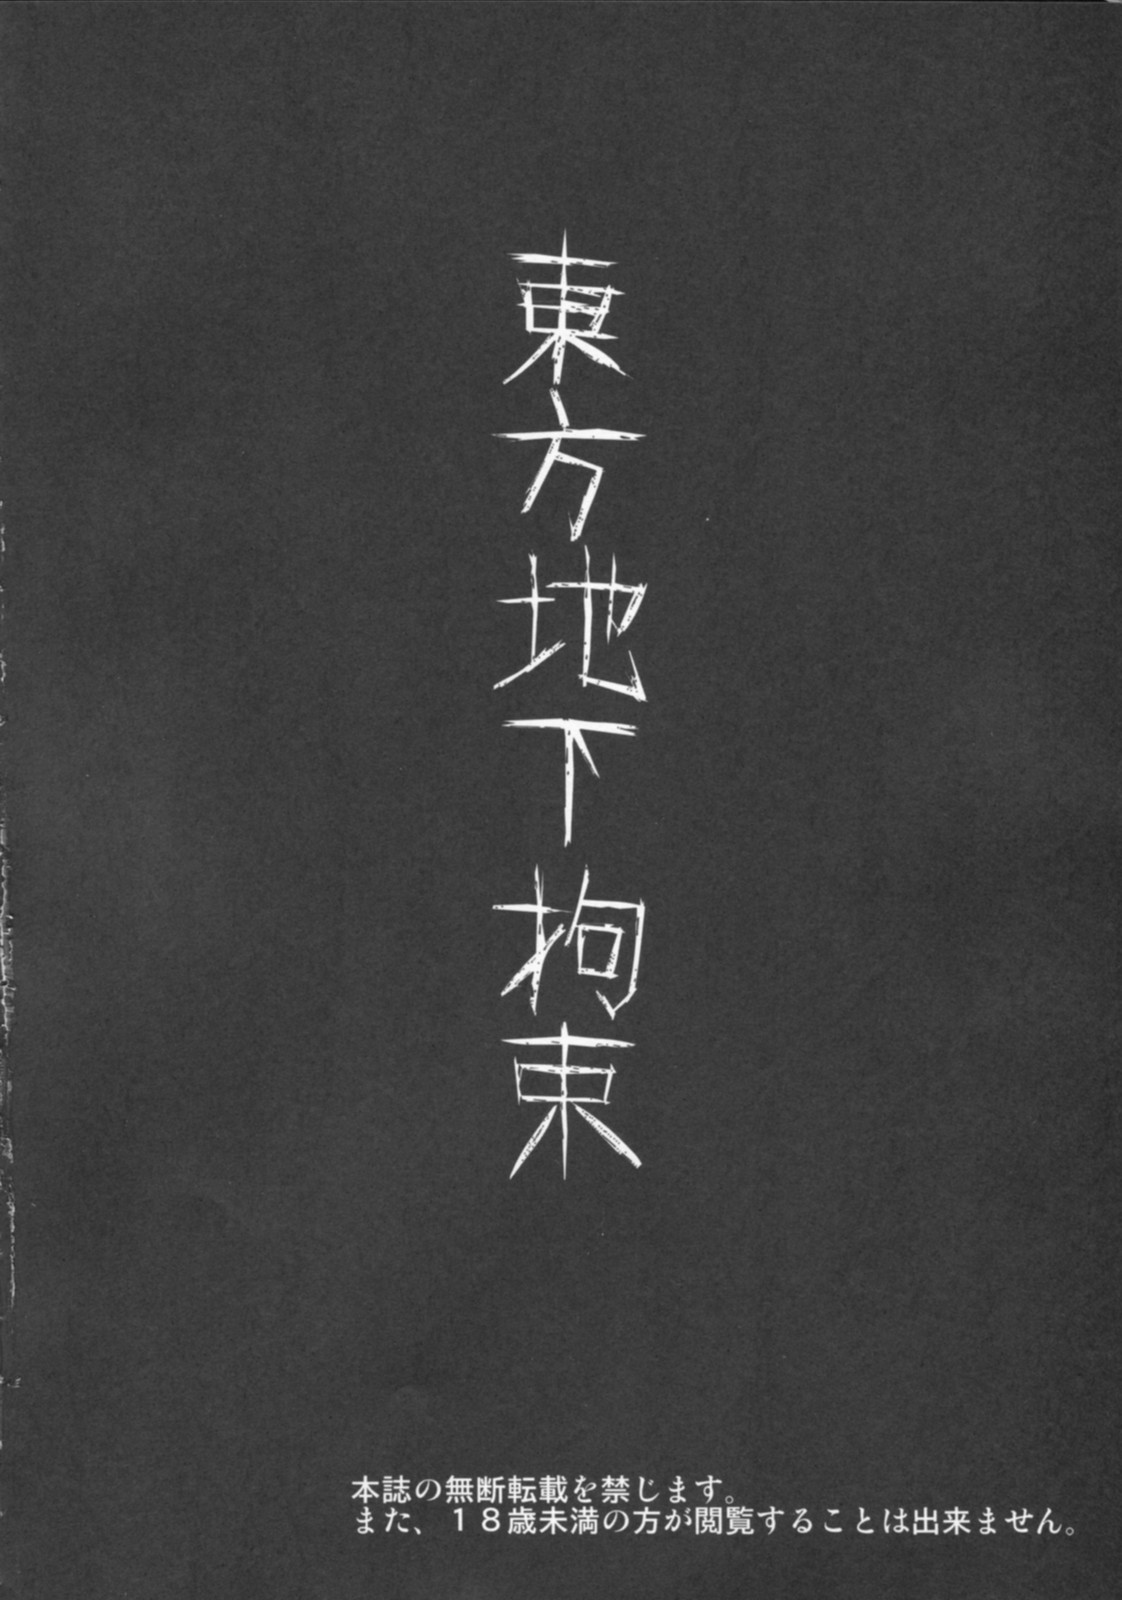 東方地下拘束
本誌の無断転載を禁じます。
また、１８歳未満の方が閲覧することは出来ません。